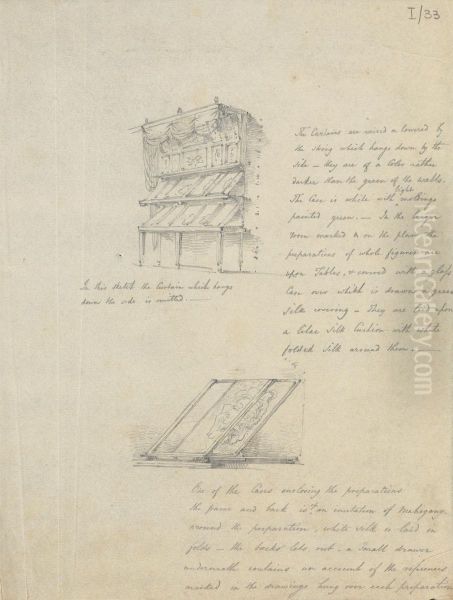 I/33
The Curtains are raised & lowered by
the string which hangs down by the
side - they are of a Color rather
darker than the green of the walls.
The Case is white with light mouldings
painted green. - In the larger
room marked on the plan the
preparations of whole figures are
upon Tables, & covered with a glass
Case over which is drawn a green
Silk covering - They are laid upon
a lilac Silk Cushion with white
folded Silk around them. -
In this sketch the Curtain which hangs
down the side is omitted. -
One of the Cases enclosing the preparations
the frame and back is an imitation of Mahogany
around the preparation, white silk is laid in
folds - the backs lets out. a Small drawer
underneath contains an account of the references
marked in the drawings hung over each preparation